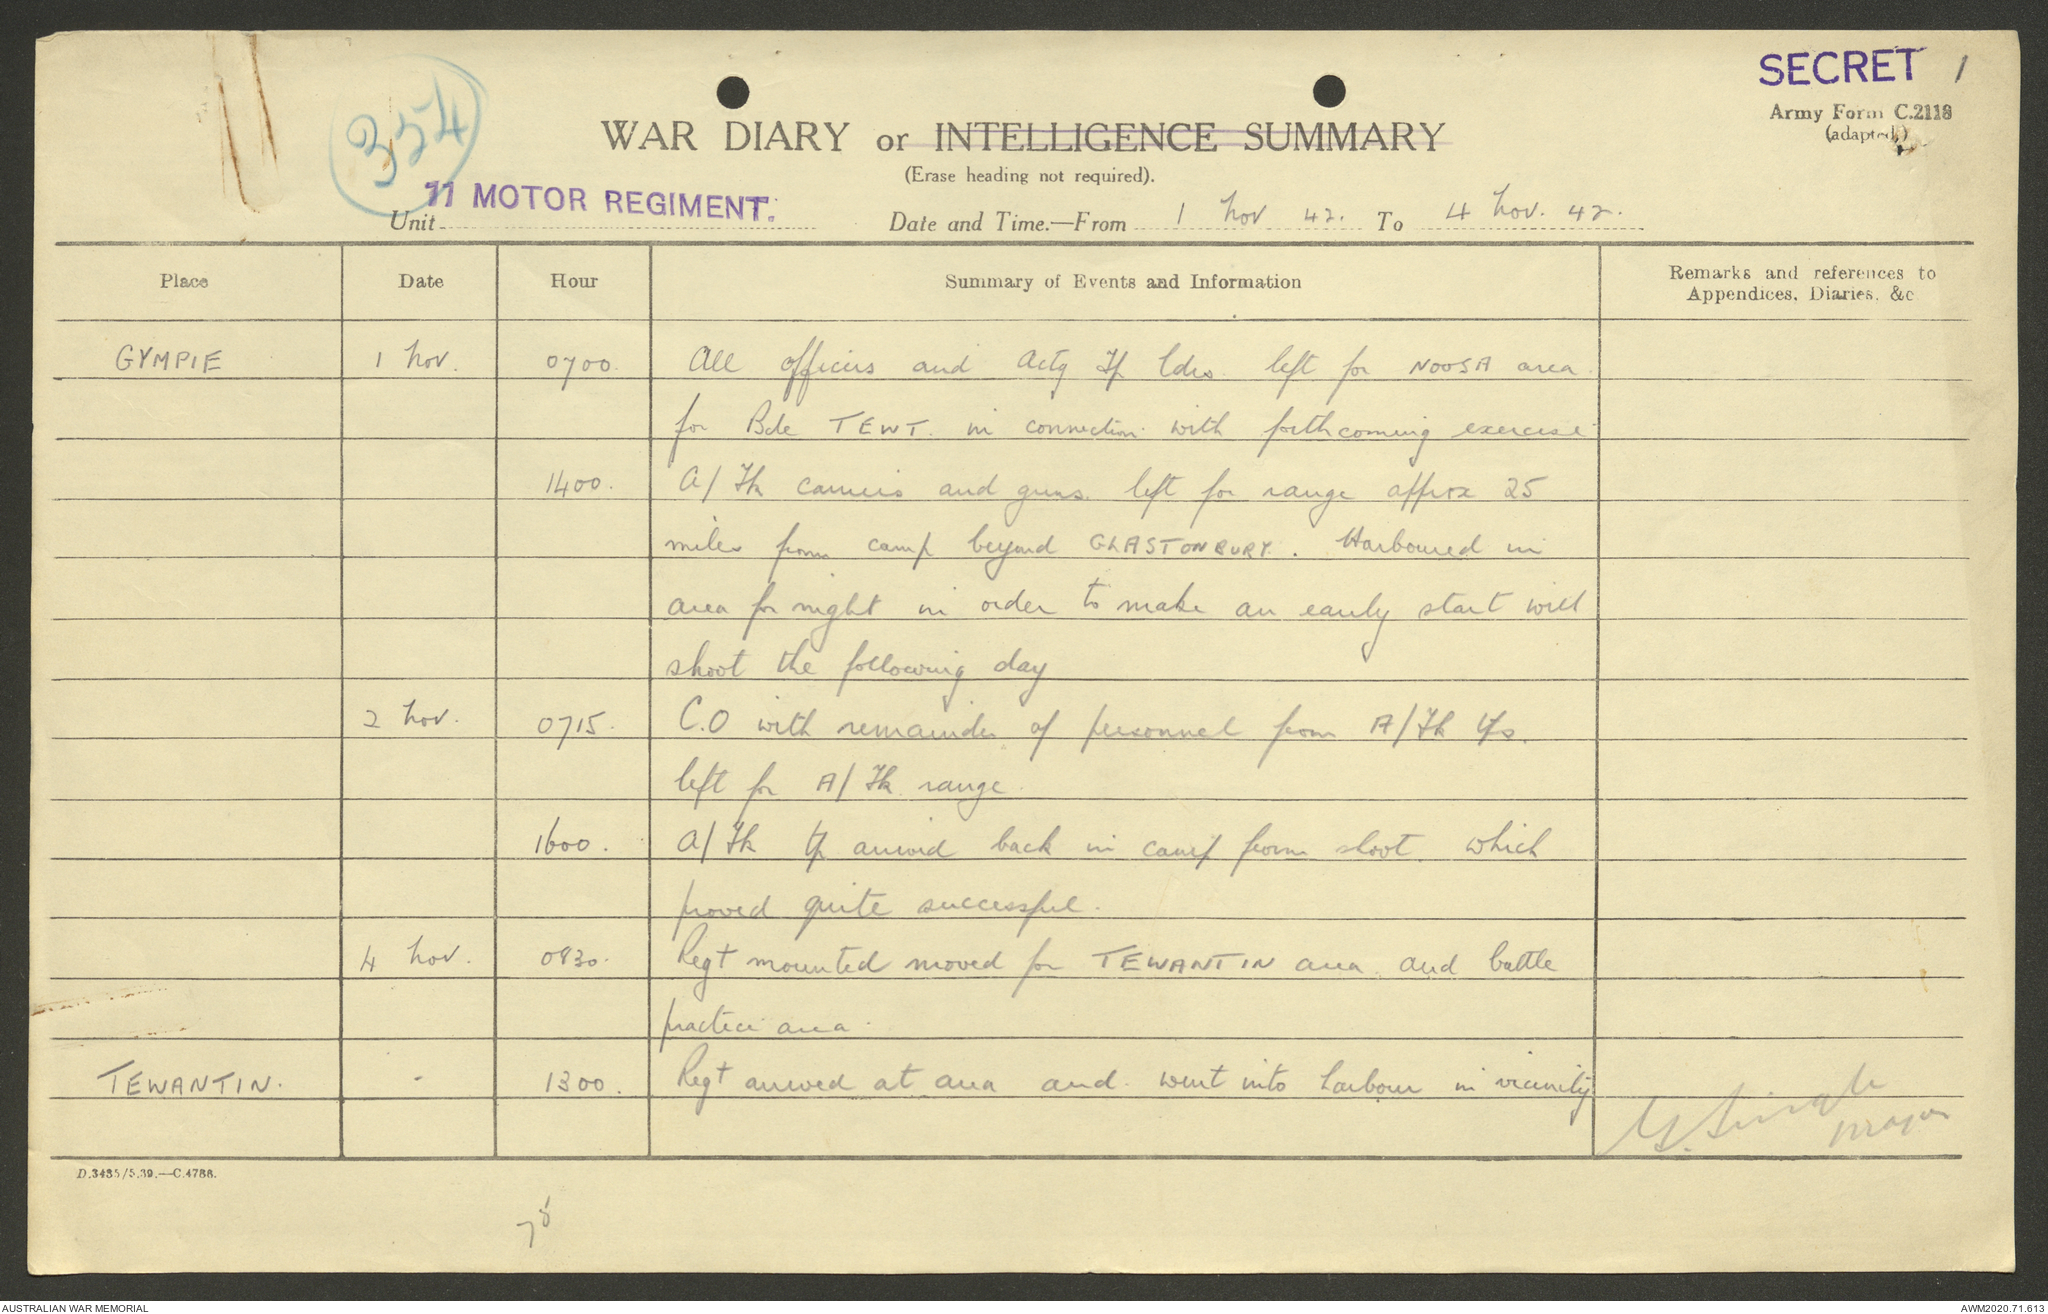 354
SECRET 1
Army Form C.2118
(adapted.)
WAR DIARY or INTELLIGENCE SUMMARY
(Erase heading not required).
Unit 11 MOTOR REGIMENT. Date and Time.—From 1 Nov 42. To 4 Nov. 42.
Place Date Hour Summary of Events and Information Remarks and references to
Appendices, Diaries, &c
GYMPIE 1 Nov. 0700. All officers and Actg Tp ldrs. left for NOOSA area.
for Bde TEWT. in connection with forthcoming exercise
1400. A/Tk carriers and guns. left for range approx 25
miles from camp beyond GLASTONBURY. Harboured in
area for night in order to make an early start with
shoot the following day
2 Nov. 0715. C.O with remainder of personnel from A/Tk Tps.
left for A/Tk range.
1600. A/Tk Tp arrived back in camp from shoot. which
proved quite successful.
4 Nov. 0830. Regt mounted moved for TEWANTIN area. and battle
practice area.
TEWANTIN. - 1300. Regt arrived at area and. went into harbour in vicinity
Major
D.3485/5.39.—C.4788.
78
AUSTRALIAN WAR MEMORIAL AWM2020.71.613